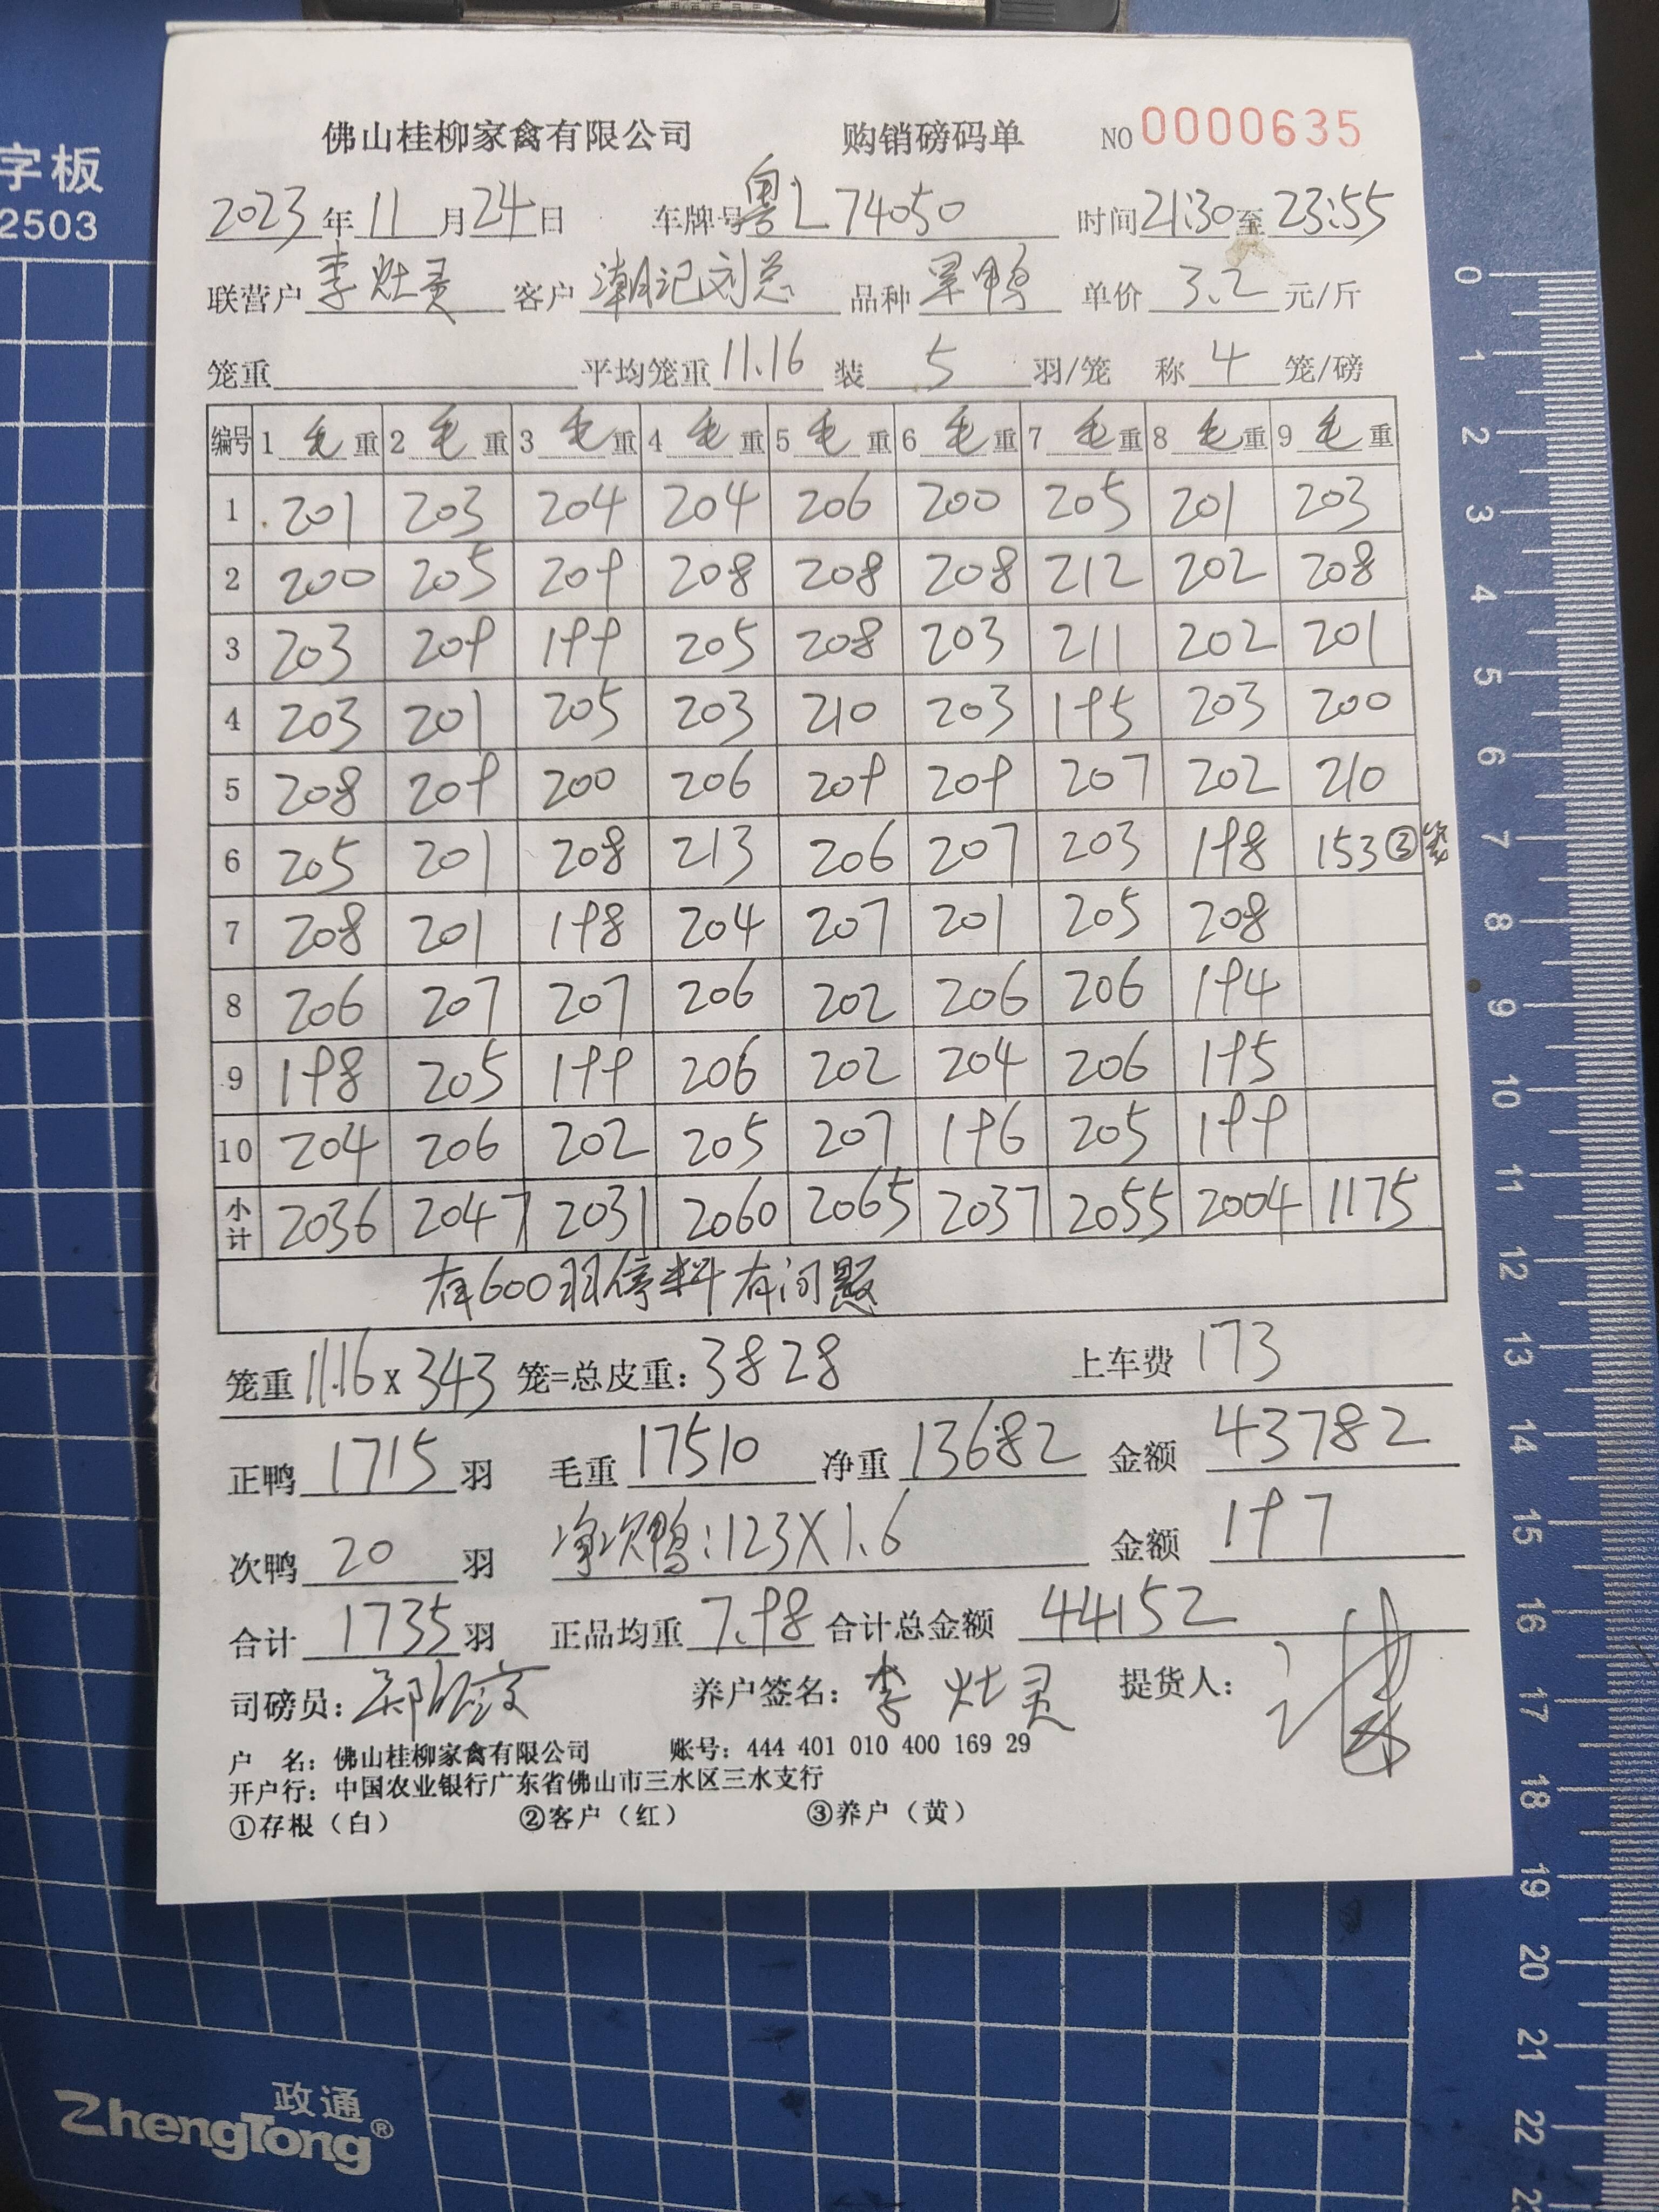 字板
2503
佛山桂柳家禽有限公司 购销磅码单 NO 0000635
2023年11月24日 车牌号粤L74050 时间21:30至23:55
联营户李灶灵 客户潮记刘总 品种 鸭 单价3.2元/斤
笼重 平均笼重11.16 装5羽/笼 称4笼/磅
编号 1毛重 2毛重 3毛重 4毛重 5毛重 6毛重 7毛重 8毛重 9毛重
1 201 203 204 204 206 200 205 201 203
2 200 205 209 208 208 208 212 202 208
3 203 209 199 205 208 203 211 202 201
4 203 201 205 203 210 203 195 203 200
5 208 209 200 206 209 209 207 202 210
6 205 201 208 213 206 207 203 198 153 ③笼
7 208 201 198 204 207 201 205 208
8 206 207 207 206 202 206 206 194
9 198 205 199 206 202 204 206 195
10 204 206 202 205 207 196 205 199
小计 2036 2047 2031 2060 2065 2037 2055 2004 1175
有600羽停料有问题
笼重11.16x343笼=总皮重:3828 上车费173
正鸭1715羽 毛重17510 净重13682 金额43782
次鸭20羽 净次鸭:123X1.6 金额197
合计1735羽 正品均重7.98 合计总金额44152
司磅员: 养户签名:李灶灵 提货人:
户 名:佛山桂柳家禽有限公司 账号:444 401 010 400 169 29
开户行:中国农业银行广东省佛山市三水区三水支行
①存根(白) ②客户(红) ③养户(黄)
政通
ZhengTong®
0
1
2
3
4
5
6
7
8
9
10
11
12
13
14
15
16
17
18
19
20
21
22